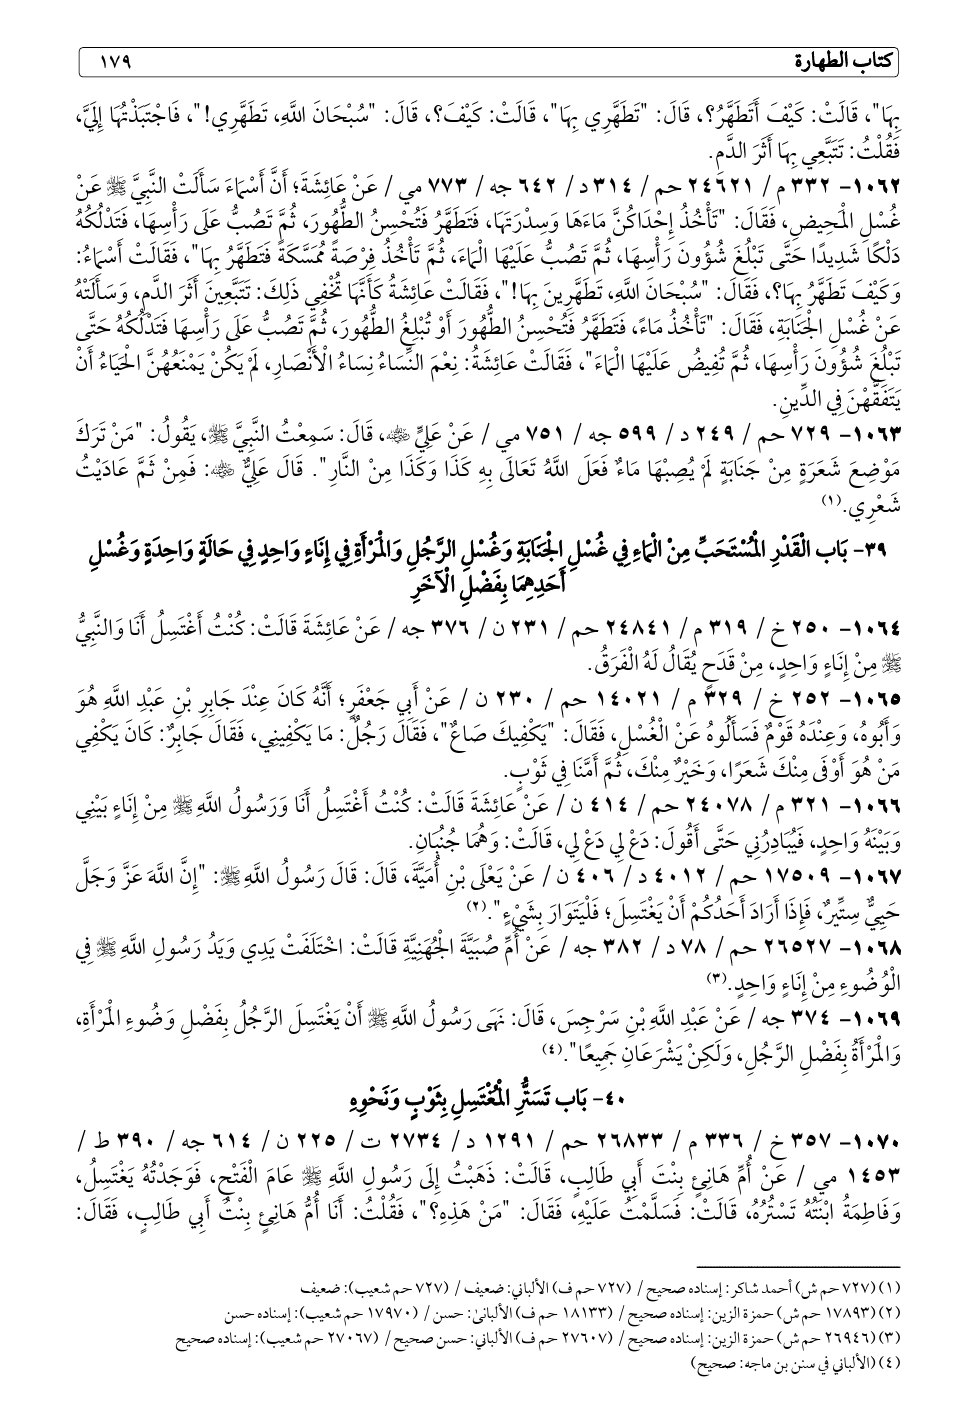 كتاب الطهارة ١٧٩
بِهَا"، قَالَتْ: كَيْفَ أَتَطَهَّرُ؟، قَالَ: "تَطَهَّرِي بِهَا"، قَالَتْ: كَيْفَ؟، قَالَ: "سُبْحَانَ اللَّهِ، تَطَهَّرِي!"، فَاجْتَبَذْتُهَا إِلَيَّ،
فَقُلْتُ: تَتَبَّعِي بِهَا أَثَرَ الدَّمِ.
١٠٦٢- ٣٣٢ م/ ٢٤٦٢١ حم/ ٣١٤ د/ ٦٤٢ جه / ٧٧٣ مي / عَنْ عَائِشَةَ؛ أَنَّ أَسْمَاءَ سَأَلَتْ النَّبِيَّ ﷺ عَنْ
غُسْلِ الْمَحِيضِ، فَقَالَ: "تَأْخُذُ إِحْدَاكُنَّ مَاءَهَا وَسِدْرَتَهَا، فَتَطَهَّرُ فَتُحْسِنُ الطُّهُورَ، ثُمَّ تَصُبُّ عَلَى رَأْسِهَا، فَتَدْلُكُهُ
دَلْكًا شَدِيدًا حَتَّى تَبْلُغَ شُؤُونَ رَأْسِهَا، ثُمَّ تَصُبُّ عَلَيْهَا الْمَاءَ، ثُمَّ تَأْخُذُ فِرْصَةً مُمَسَّكَةً فَتَطَهَّرُ بِهَا"، فَقَالَتْ أَسْمَاءُ:
وَكَيْفَ تَطَهَّرُ بِهَا؟، فَقَالَ: "سُبْحَانَ اللَّهِ، تَطَهَّرِينَ بِهَا!"، فَقَالَتْ عَائِشَةُ كَأَنَّهَا تُخْفِي ذَلِكَ: تَتَبَّعِينَ أَثَرَ الدَّمِ، وَسَأَلَتْهُ
عَنْ غُسْلِ الْجَنَابَةِ، فَقَالَ: "تَأْخُذُ مَاءً، فَتَطَهَّرُ فَتُحْسِنُ الطُّهُورَ أَوْ تُبْلِغُ الطُّهُورَ، ثُمَّ تَصُبُّ عَلَى رَأْسِهَا فَتَدْلُكُهُ حَتَّى
تَبْلُغَ شُؤُونَ رَأْسِهَا، ثُمَّ تُفِيضُ عَلَيْهَا الْمَاءَ"، فَقَالَتْ عَائِشَةُ: نِعْمَ النِّسَاءُ نِسَاءُ الْأَنْصَارِ، لَمْ يَكُنْ يَمْنَعُهُنَّ الْحَيَاءُ أَنْ
يَتَفَقَّهْنَ فِي الدِّينِ.
١٠٦٣- ٧٢٩ حم/ ٢٤٩ د/ ٥٩٩ جه / ٧٥١ مي / عَنْ عَلِيٍّ ﷺ، قَالَ: سَمِعْتُ النَّبِيَّ ﷺ، يَقُولُ: "مَنْ تَرَكَ
مَوْضِعَ شَعَرَةٍ مِنْ جَنَابَةٍ لَمْ يُصِبْهَا مَاءٌ فَعَلَ اللَّهُ تَعَالَى بِهِ كَذَا وَكَذَا مِنْ النَّارِ". قَالَ عَلِيٌّ ﷺ: فَمِنْ ثَمَّ عَادَيْتُ
شَعْرِي.(١)
٣٩- بَاب الْقَدْرِ الْمُسْتَحَبِّ مِنْ الْمَاءِ فِي غُسْلِ الْجَنَابَةِ وَغُسْلِ الرَّجُلِ وَالْمَرْأَةِ فِي إِنَاءٍ وَاحِدٍ فِي حَالَةٍ وَاحِدَةٍ وَغُسْلِ
أَحَدِهِمَا بِفَضْلِ الْآخَرِ
١٠٦٤- ٢٥٠ خ / ٣١٩ م/ ٢٤٨٤١ حم/ ٢٣١ ن/ ٣٧٦ جه / عَنْ عَائِشَةَ قَالَتْ: كُنْتُ أَغْتَسِلُ أَنَا وَالنَّبِيُّ
ﷺ مِنْ إِنَاءٍ وَاحِدٍ، مِنْ قَدَحٍ يُقَالُ لَهُ الْفَرَقُ.
١٠٦٥- ٢٥٢ خ / ٣٢٩ م/ ١٤٠٢١ حم/ ٢٣٠ ن / عَنْ أَبِي جَعْفَرٍ؛ أَنَّهُ كَانَ عِنْدَ جَابِرِ بْنِ عَبْدِ اللَّهِ هُوَ
وَأَبُوهُ، وَعِنْدَهُ قَوْمٌ فَسَأَلُوهُ عَنْ الْغُسْلِ، فَقَالَ: "يَكْفِيكَ صَاعٌ"، فَقَالَ رَجُلٌ: مَا يَكْفِينِي، فَقَالَ جَابِرٌ: كَانَ يَكْفِي
مَنْ هُوَ أَوْفَى مِنْكَ شَعَرًا، وَخَيْرٌ مِنْكَ، ثُمَّ أَمَّنَا فِي ثَوْبٍ.
١٠٦٦- ٣٢١ م/ ٢٤٠٧٨ حم/ ٤١٤ ن/ عَنْ عَائِشَةَ قَالَتْ: كُنْتُ أَغْتَسِلُ أَنَا وَرَسُولُ اللَّهِ ﷺ مِنْ إِنَاءٍ بَيْنِي
وَبَيْنَهُ وَاحِدٍ، فَيُبَادِرُنِي حَتَّى أَقُولَ: دَعْ لِي دَعْ لِي، قَالَتْ: وَهُمَا جُنُبَانِ.
١٠٦٧- ١٧٥٠٩ حم/ ٤٠١٢ د/ ٤٠٦ ن/ عَنْ يَعْلَى بْنِ أُمَيَّةَ، قَالَ: قَالَ رَسُولُ اللَّهِ ﷺ: "إِنَّ اللَّهَ عَزَّ وَجَلَّ
حَيِيٌّ سِتِّيرٌ، فَإِذَا أَرَادَ أَحَدُكُمْ أَنْ يَغْتَسِلَ؛ فَلْيَتَوَارَ بِشَيْءٍ".(٢)
١٠٦٨- ٢٦٥٢٧ حم/ ٧٨ د/ ٣٨٢ جه / عَنْ أُمِّ صُبَيَّةَ الْجُهَنِيَّةِ قَالَتْ: اخْتَلَفَتْ يَدِي وَيَدُ رَسُولِ اللَّهِ ﷺ فِي
الْوُضُوءِ مِنْ إِنَاءٍ وَاحِدٍ.(٣)
١٠٦٩- ٣٧٤ جه / عَنْ عَبْدِ اللَّهِ بْنِ سَرْجِسَ، قَالَ: نَهَى رَسُولُ اللَّهِ ﷺ أَنْ يَغْتَسِلَ الرَّجُلُ بِفَضْلِ وَضُوءِ الْمَرْأَةِ،
وَالْمَرْأَةُ بِفَضْلِ الرَّجُلِ، وَلَكِنْ يَشْرَعَانِ جَمِيعًا".(٤)
٤٠- بَاب تَسَتُّرِ الْمُغْتَسِلِ بِثَوْبٍ وَنَحْوِهِ
١٠٧٠- ٣٥٧ خ/ ٣٣٦ م/ ٢٦٨٣٣ حم/ ١٢٩١ د/ ٢٧٣٤ ت/ ٢٢٥ ن/ ٦١٤ جه/ ٣٩٠ ط/
١٤٥٣ مي / عَنْ أُمِّ هَانِئٍ بِنْتَ أَبِي طَالِبٍ، قَالَتْ: ذَهَبْتُ إِلَى رَسُولِ اللَّهِ ﷺ عَامَ الْفَتْحِ، فَوَجَدْتُهُ يَغْتَسِلُ،
وَفَاطِمَةُ ابْنَتُهُ تَسْتُرُهُ، قَالَتْ: فَسَلَّمْتُ عَلَيْهِ، فَقَالَ: "مَنْ هَذِهِ؟"، فَقُلْتُ: أَنَا أُمُّ هَانِئٍ بِنْتُ أَبِي طَالِبٍ، فَقَالَ:
(١) (٧٢٧ حم ش) أحمد شاكر: إسناده صحيح/ (٧٢٧ حم ف) الألباني: ضعيف / (٧٢٧ حم شعيب): ضعيف
(٢) (١٧٨٩٣ حم ش) حمزة الزين: إسناده صحيح/ (١٨١٣٣ حم ف) الألبانى: حسن / (١٧٩٧٠ حم شعيب): إسناده حسن
(٣) (٢٦٩٤٦ حم ش) حمزة الزين: إسناده صحيح/ (٢٧٦٠٧ حم ف) الألباني: حسن صحيح/ (٢٧٠٦٧ حم شعيب): إسناده صحيح
(٤) (الألباني في سنن بن ماجه: صحيح)